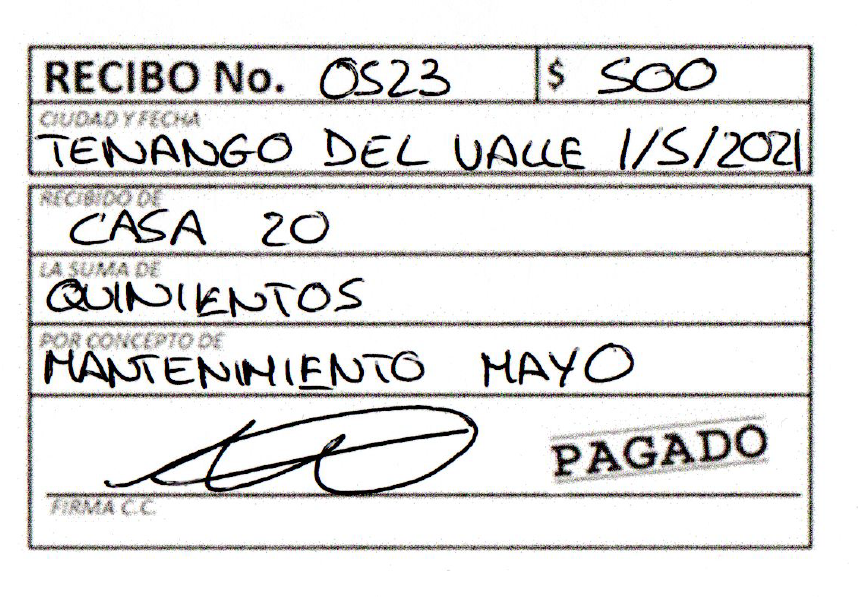 RECIBO No. 0523 $ 500
CIUDAD Y FECHA
TENANGO DEL VALLE 1/5/2021
RECIBIDO DE
CASA 20
LA SUMA DE
QUINIENTOS
POR CONCEPTO DE
MANTENIMIENTO MAYO
PAGADO
FIRMA C.C.